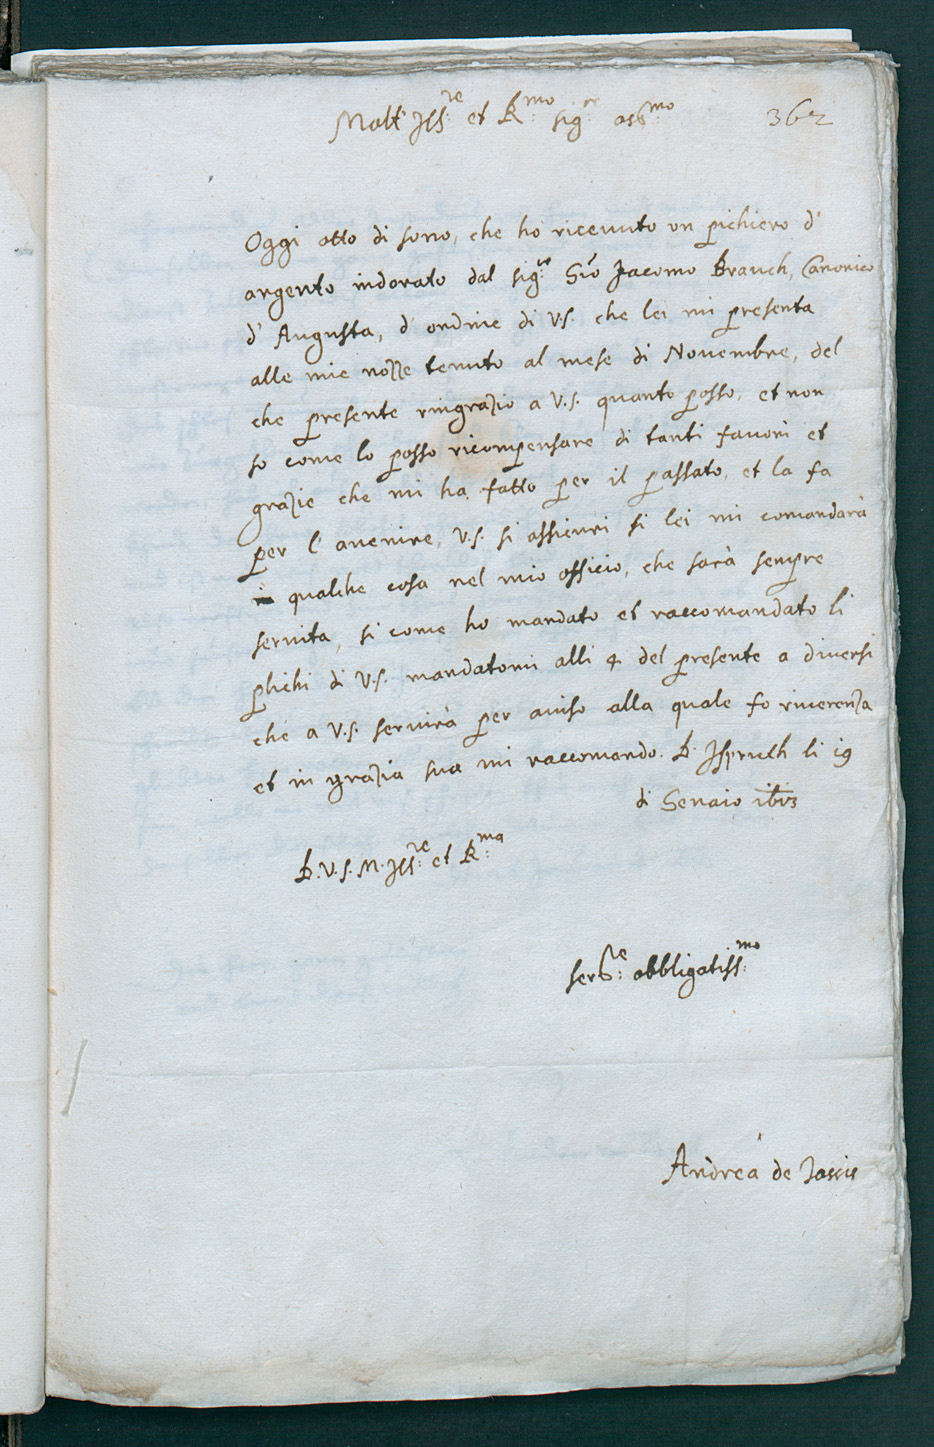 Molt' Ill:re et R:mo sig:r oss:mo 362
Oggi otto di sono, che ho riceuuto un pichiero d'
argento indorato dal sig:re Gio Jacomo Brauch, Canonico
d' Augusta, d' ordine di V.S. che lei mi presenta
alle mie nozze tenuto al mese di Nouembre, del
che presente ringrazio a V.S. quanto posso, et non
so come lo posso ricompensare di tanti fauori et
grazie che mi ha fatto per il passato, et la fa
per l' auenire, V.S. si assicuri si lei mi comandarà
qualche cosa nel mio officio, che sarà sempre
seruita, si come ho mandato et raccomandato li
plichi di V.S. mandatomi alli 4 del presente a diuersi
che a V.S. seruirà per auiso alla quale fo riuerenza
et in grazia sua mi raccomando. D' Ispruch li 19
di Genaio 1613
D.V.S.M.Ill:re et R:ma
ser:re obbligatiss:mo
Andrea de Tassis